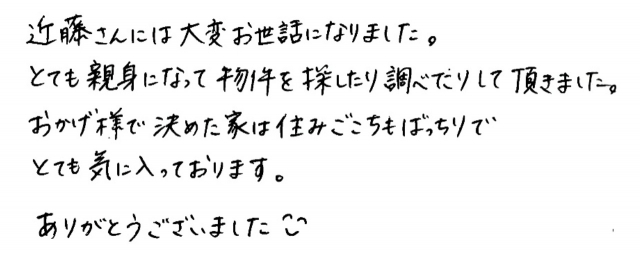 近藤さんには大変お世話になりました。
とても親身になって物件を探したり調べたりして頂きました。
おかげ様で決めた家は住みごこちもばっちりで
とても気に入っております。
ありがとうございました